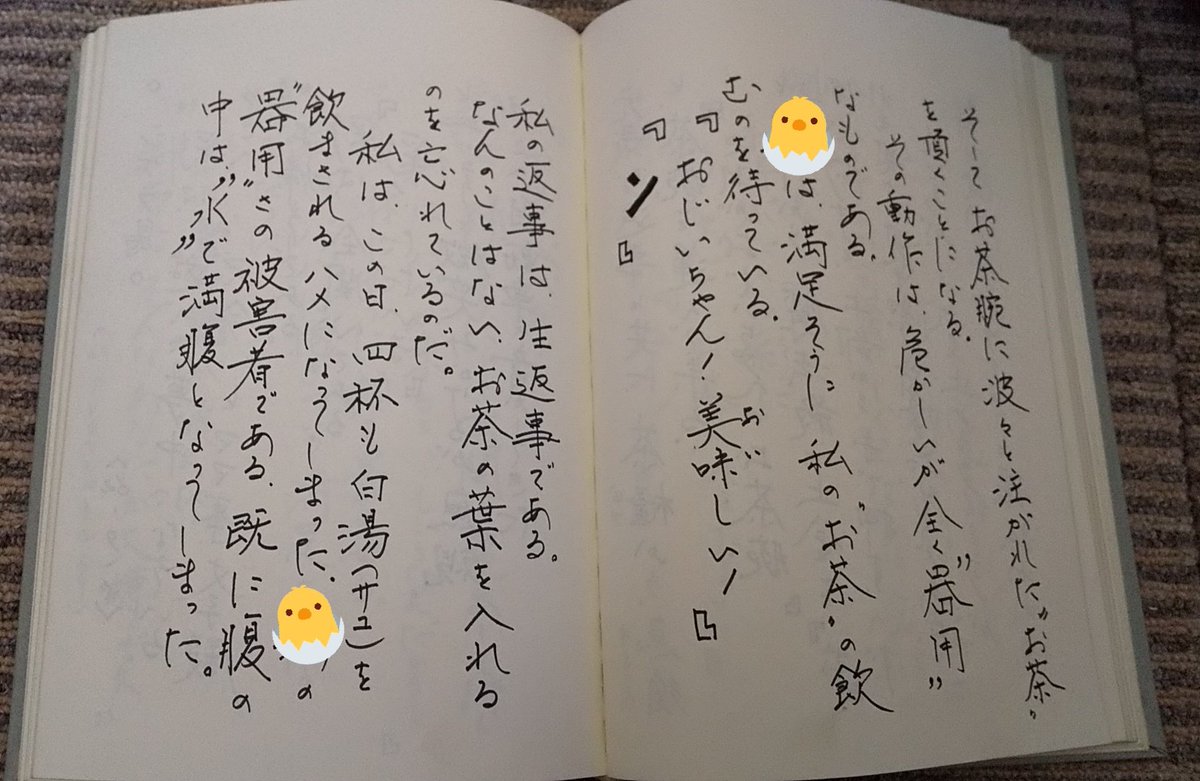 そしてお茶腕に波々と注がれた"お茶"
を頂くことになる。
その動作は、危かしいが全く"器用"
なものである。
は、満足そうに私の"お茶"の飲
むのを待っている。
『おじいちゃん!美味しい!』
おい
『ン』
私の返事は、生返事である。
なんのことはない、お茶の葉を入れる
のを忘れているのだ。
私は、この日、四杯も白湯(サユ)を
飲まされるハメになってしまった、の
"器用"さの被害者である、既に腹の
中は、"水"で満腹となってしまった。